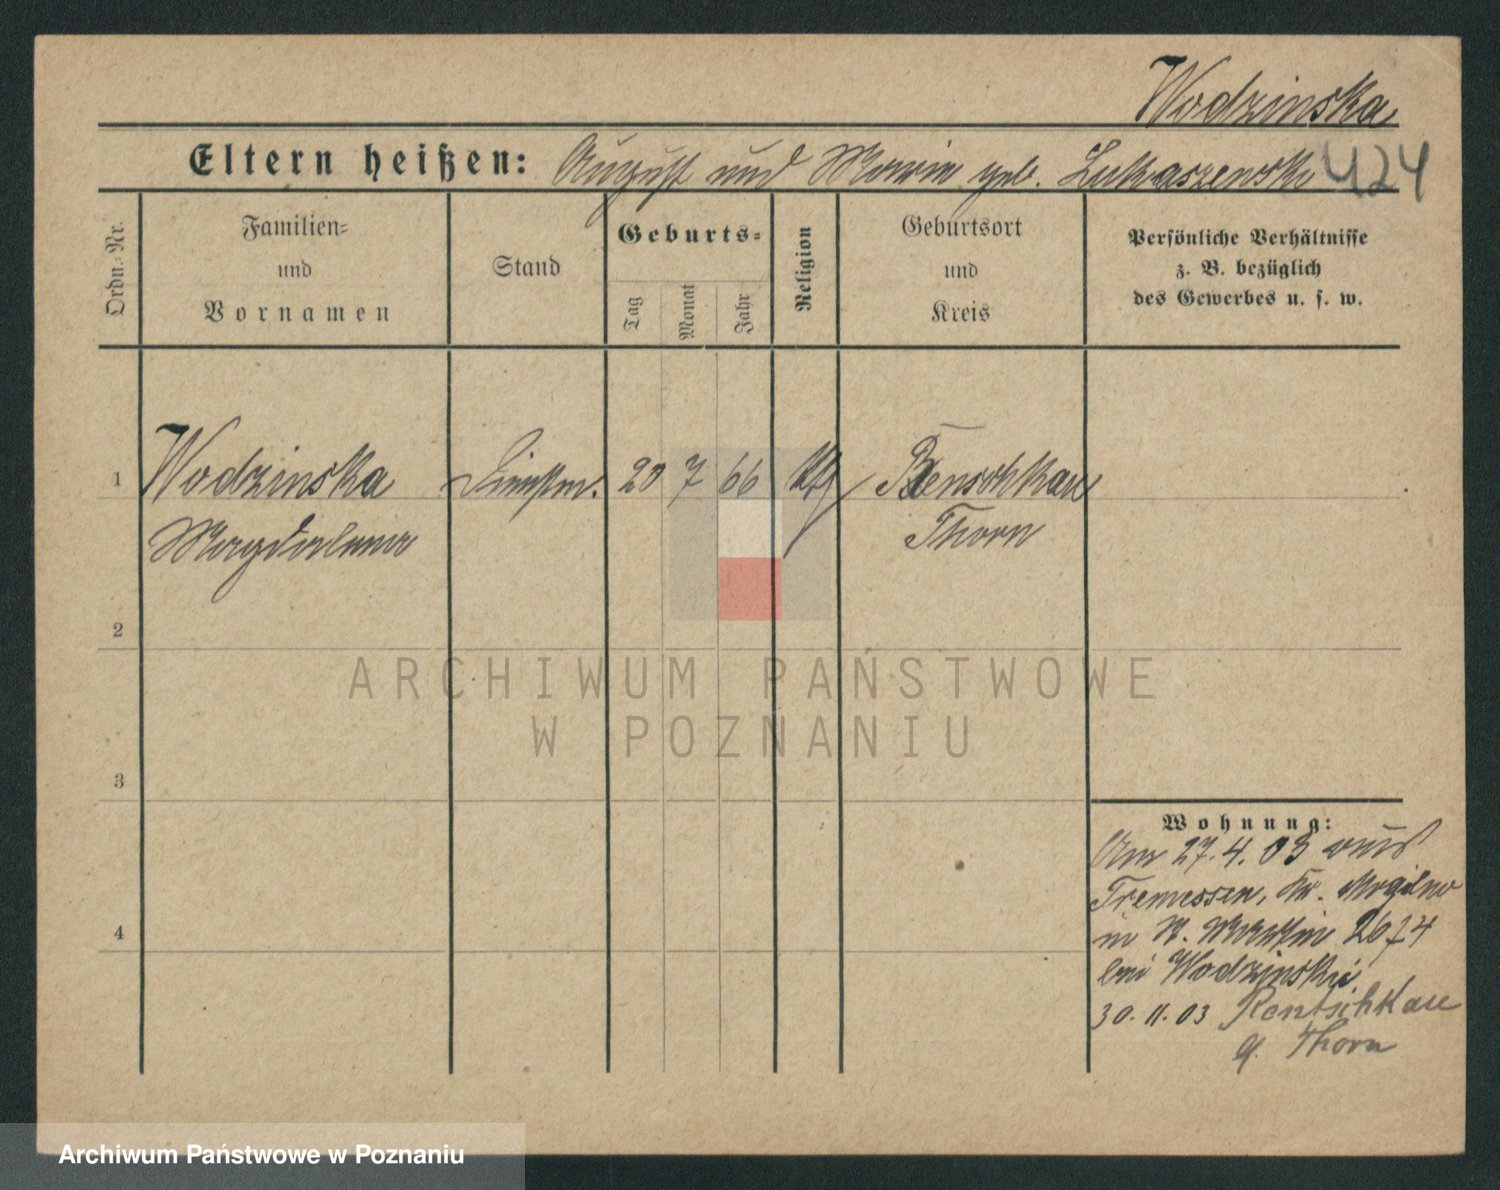 Wodzinska
Eltern heißen: August und Marie geb. Lukaszewska 424
Ordn.-Nr.
Familien-
und
Vornamen
Stand
Geburts-
Tag
Monat
Jahr
Religion
Geburtsort
und
Kreis
Persönliche Verhältnisse
z. B. bezüglich
des Gewerbes u. s. w.
1 Wodzinska Dienstm. 20 7 66 kth Renschkau
Magdalena Thorn
2
3
4
Wohnung:
Am 27.4.03 aus
Tremessen, Kr. Mogilno
in St. 26/4
bei Wodzinski
30.11.03 Rentschkau
Thorn
ARCHIWUM PAŃSTWOWE
W POZNANIU
Archiwum Państwowe w Poznaniu